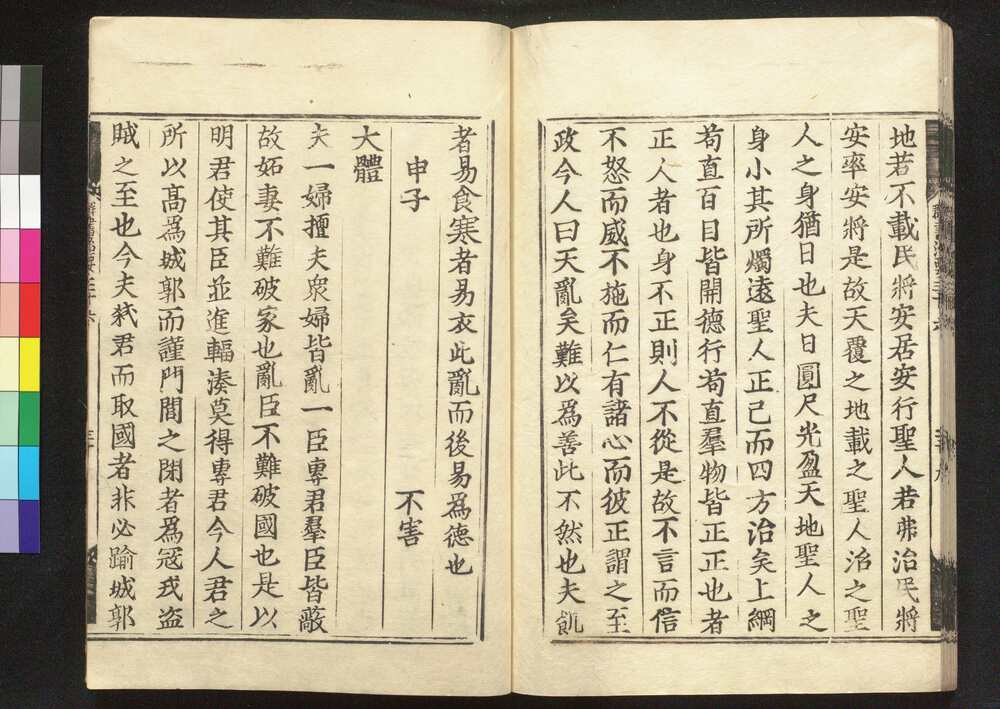 地若不載民將安居安行聖人若弗治民將
安率安將是故天覆之地載之聖人治之聖
人之身猶日也夫日圓尺光盈天地聖人之
身小其所燭遠聖人正己而四方治矣上綱
苟直百目皆開德行苟直羣物皆正正也者
正人者也身不正則人不從是故不言而信
不怒而威不施而仁有諸心而彼正謂之至
政今人曰天亂矣難以爲善此不然也夫飢
者易食寒者易衣此亂而後易爲德也
申子 不害
大體
夫一婦擅夫衆婦皆亂一臣專君羣臣皆蔽
故妬妻不難破家也亂臣不難破國也是以
明君使其臣並進輻湊莫得專君今人君之
所以高爲城郭而謹門閭之閉者爲寇戎盗
賊之至也今夫弒君而取國者非必踰城郭